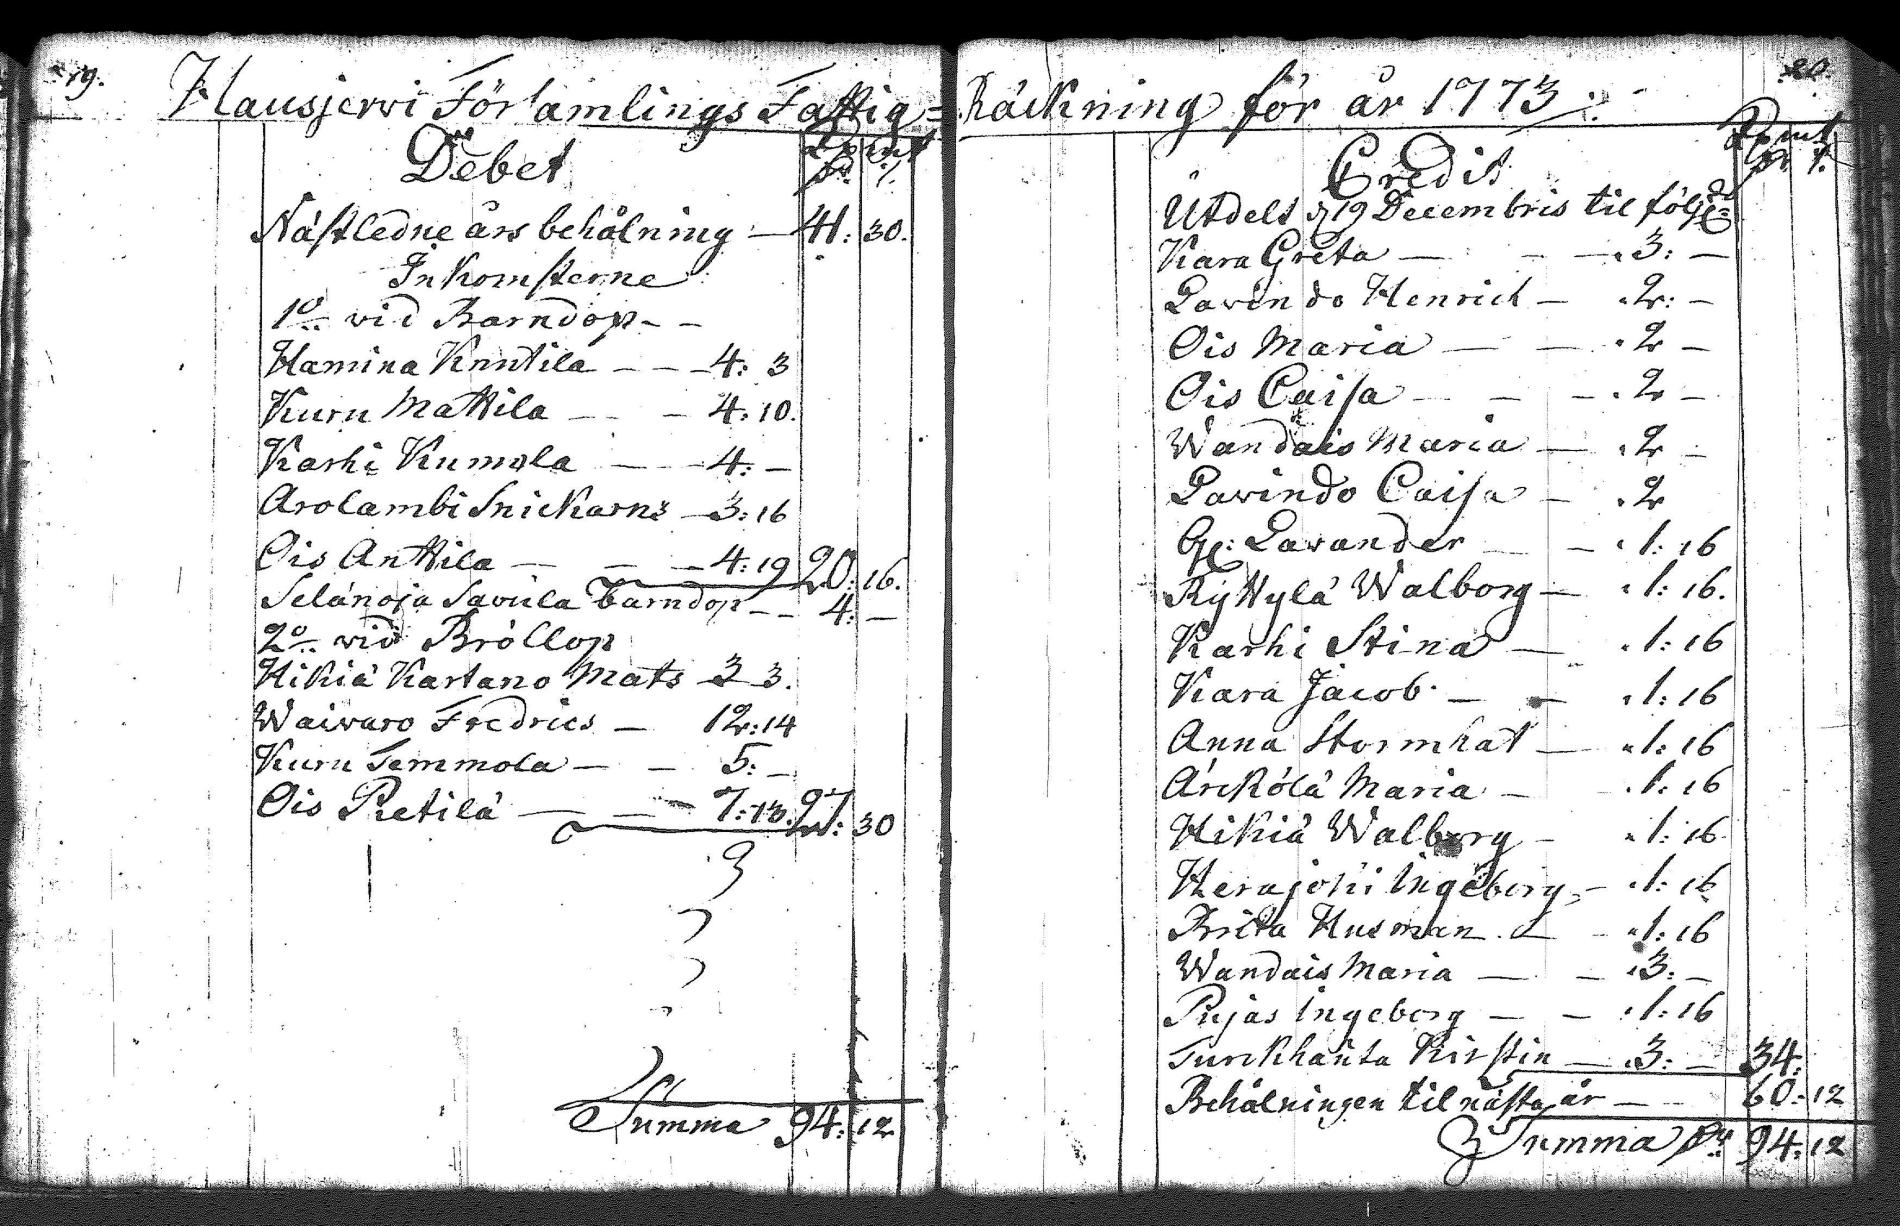 19.
Hausjerwi Församlings Fattig=
Debet
Nästledne års behålning — 41: 30.
Inkomsterne
1o vid Barndop - -
Hamina Knutila - - - 4: 3
Kuru Mattila - - - 4: 10.
Karhi Kumola - - - 4: —
Arolambi Snickarns — 3: 16
Ois Anttila — — — 4: 19 20: 16.
Selänoja Savila barndop - - 4: —
2o vid Bröllop
Hikiä Kartano Mats 3 3.
Waiwaro Fredrics — 12: 14
Kuru Temmola — — 5: —
Ois Pietilä — — — 7: 13. 27: 30
Summa 94: 12
20.
Räckning för år 1773 ./.
Credit
Utdelt d 19 Decembris til följde
Kara Greta — - — 3: —
Lavindo Henrich — 2: —
Ois Maria — — 2 —
Ois Caisa — — — 2 —
Wandais Maria — 2 —
Lavindo Caisa — 2
Gl: Lavander — — 1: 16
Ryttylä Walborg — 1: 16.
Karhi Stina — 1: 16
Kara Jacob — — 1: 16
Anna Stormhat — 1: 16
Arckölä Maria — 1: 16
Hikiä Walborg — 1: 16
Herajoki Ingeborg — 1: 16
Brita Husman — — 1: 16
Wandais Maria — — 3: —
Pujas Ingeborg — — 1: 16
Turckhauta Kirstin — 3: — 34:
Behålningen til nästa år — 60: 12
Summa 94: 12